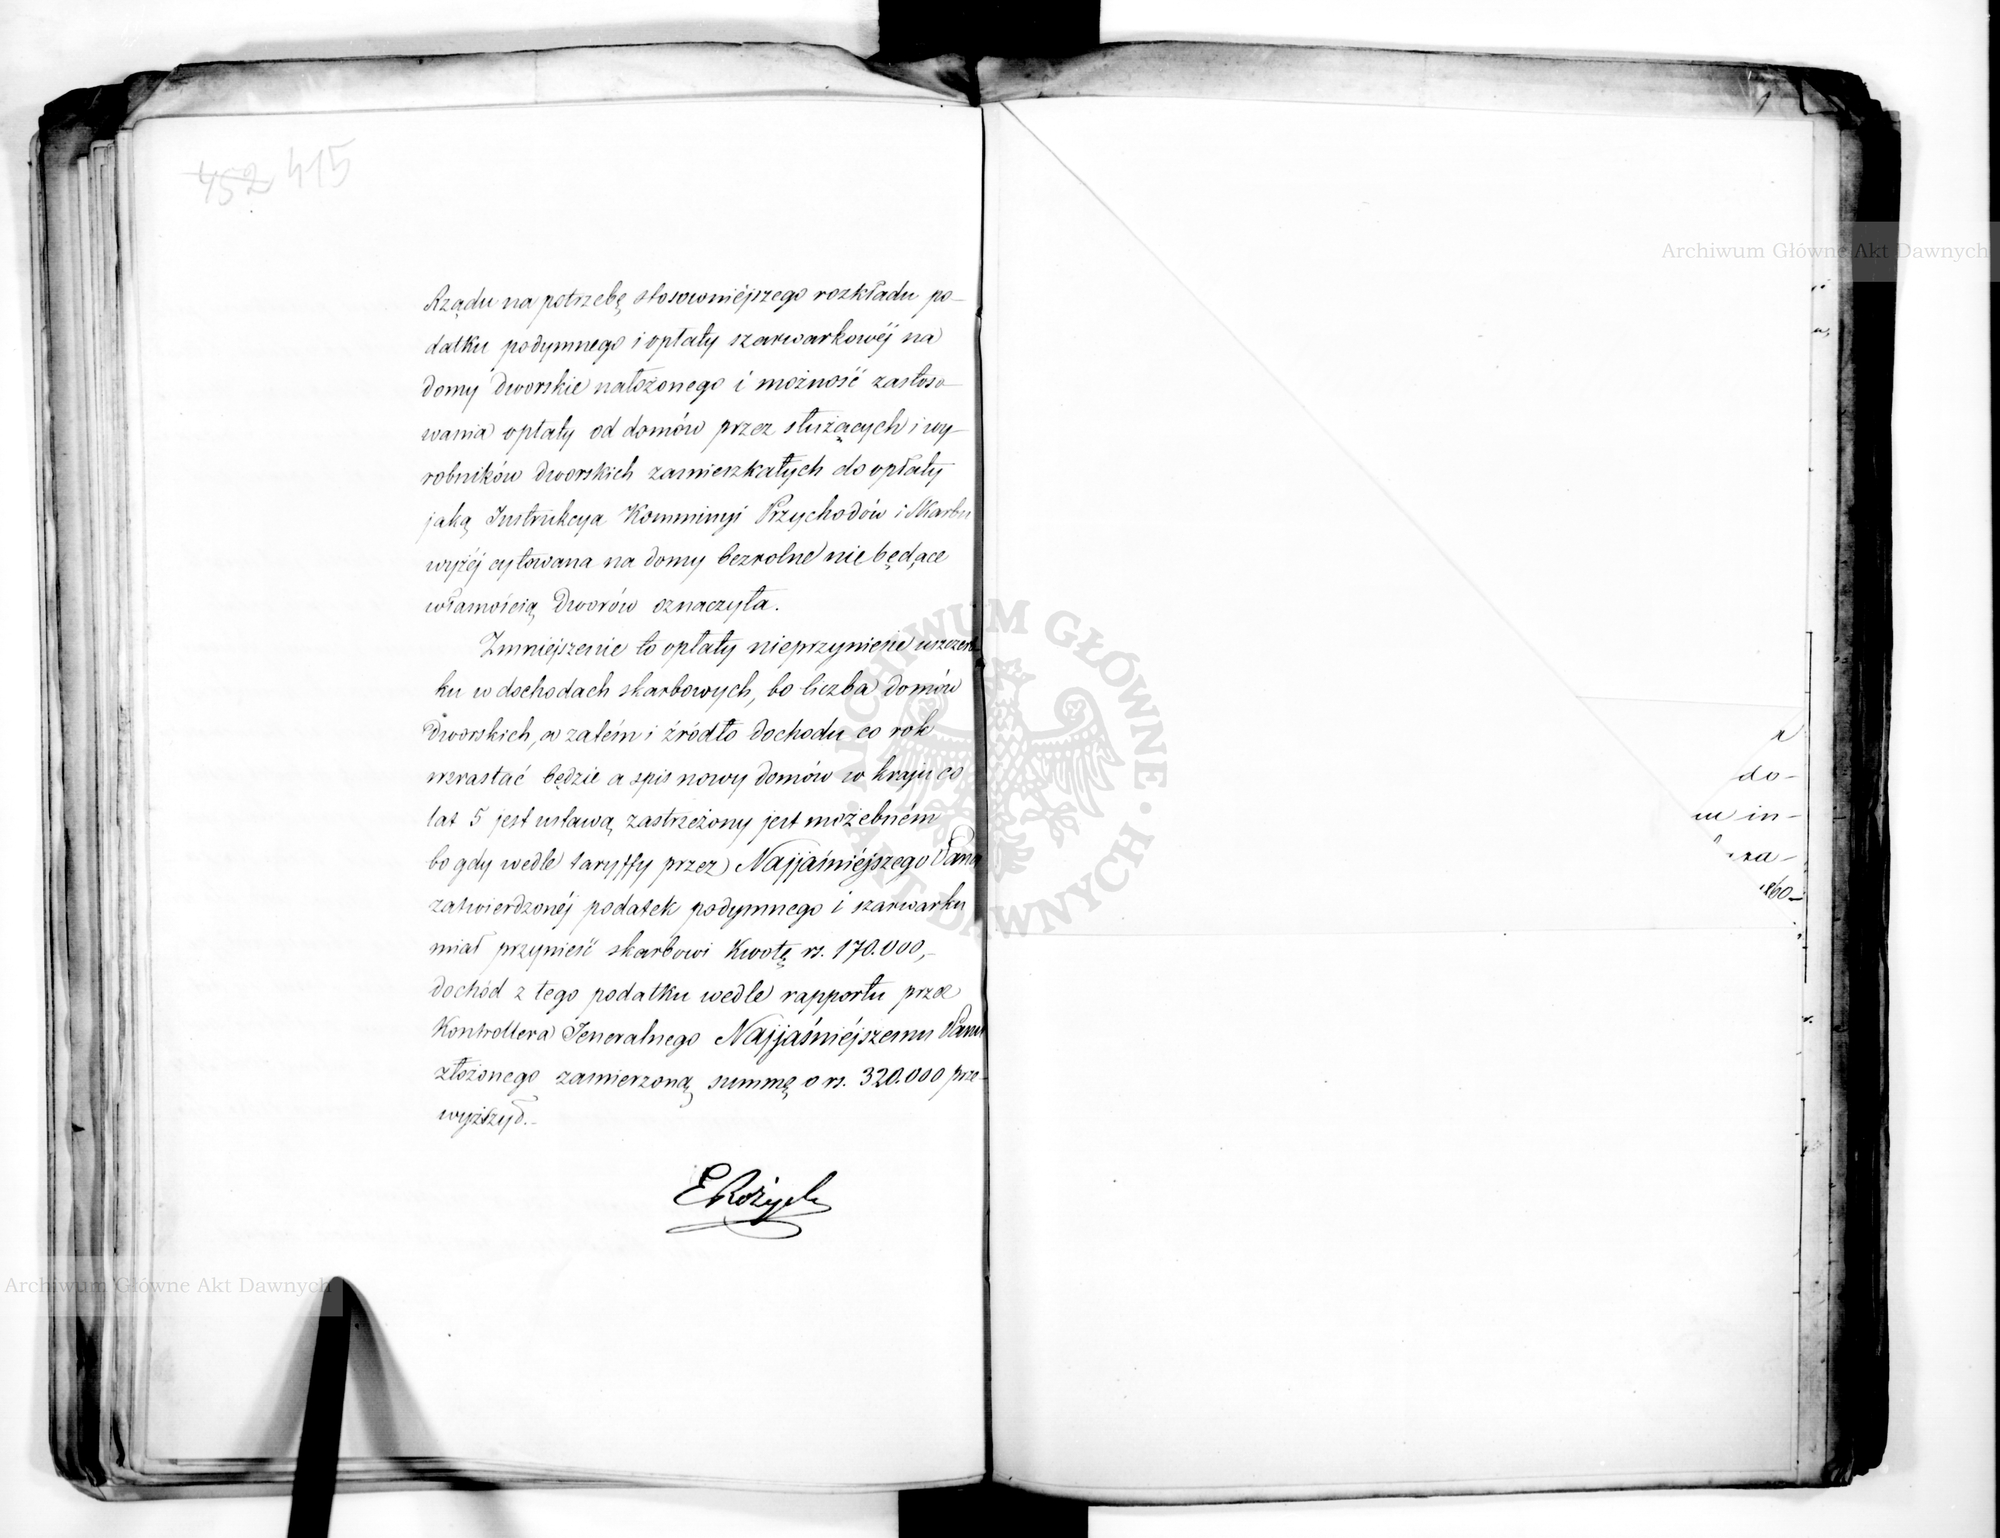 452 415
Rządu na potrzebę stosowniéjszego rozkładu po-
datku podymnego i opłaty szarwarkowéj na
domy Dworskie nałożonego i możność zastoso-
wania opłaty od domów przez służących i wy-
robników Dworskich zamieszkałych do opłaty
jaką Instrukcya Kommissyi Przychodów i Skarbu
wyżéj cytowana na domy bezrolne nie będące
własnością Dworów oznaczyła.
Zmniejszenie to opłaty nieprzyniesie uszczerb-
ku w dochodach skarbowych, bo liczba domów
Dworskich, a zatém i źródło dochodu co rok
wzrastać będzie a spis nowy domów w kraju co
lat 5 jest ustawą zastrzeżony jest możebném
bo gdy wedle taryffy przez Najjaśniéjszego Pana
zatwierdzonéj podatek podymnego i szarwarku
miał przynieść skarbowi Kwotę rs. 170.000,-
dochód z tego podatku wedle rapportu przez
Kontrollera Jeneralnego Najjaśniéjszemu Panu
złożonego zamierzoną summę o rs. 320.000 prze-
wyższył.-
ERóżycki
do-
in-
Archiwum Główne Akt Dawnych
ARCHIWUM GŁÓWNE AKT DAWNYCH
Archiwum Główne Akt Dawnych